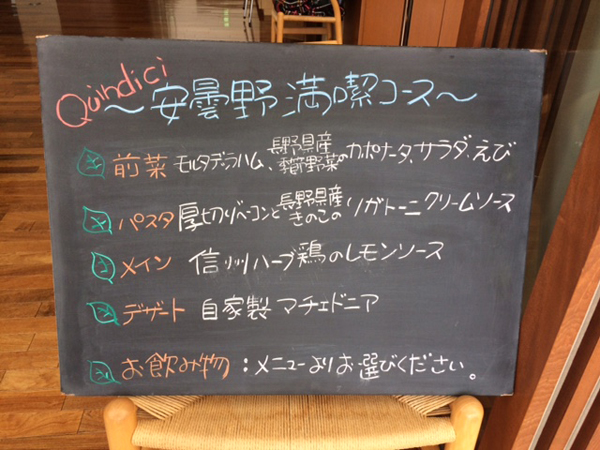 Quindici
～安曇野満喫コース～
前菜 モルタデッラハム、長野県産季節野菜のカポナータ、サラダ、えび
パスタ 厚切りベーコンと長野県産きのこのリガトーニクリームソース
メイン 信州ハーブ鶏のレモンソース
デザート 自家製マチェドニア
お飲み物：メニューよりお選びください。